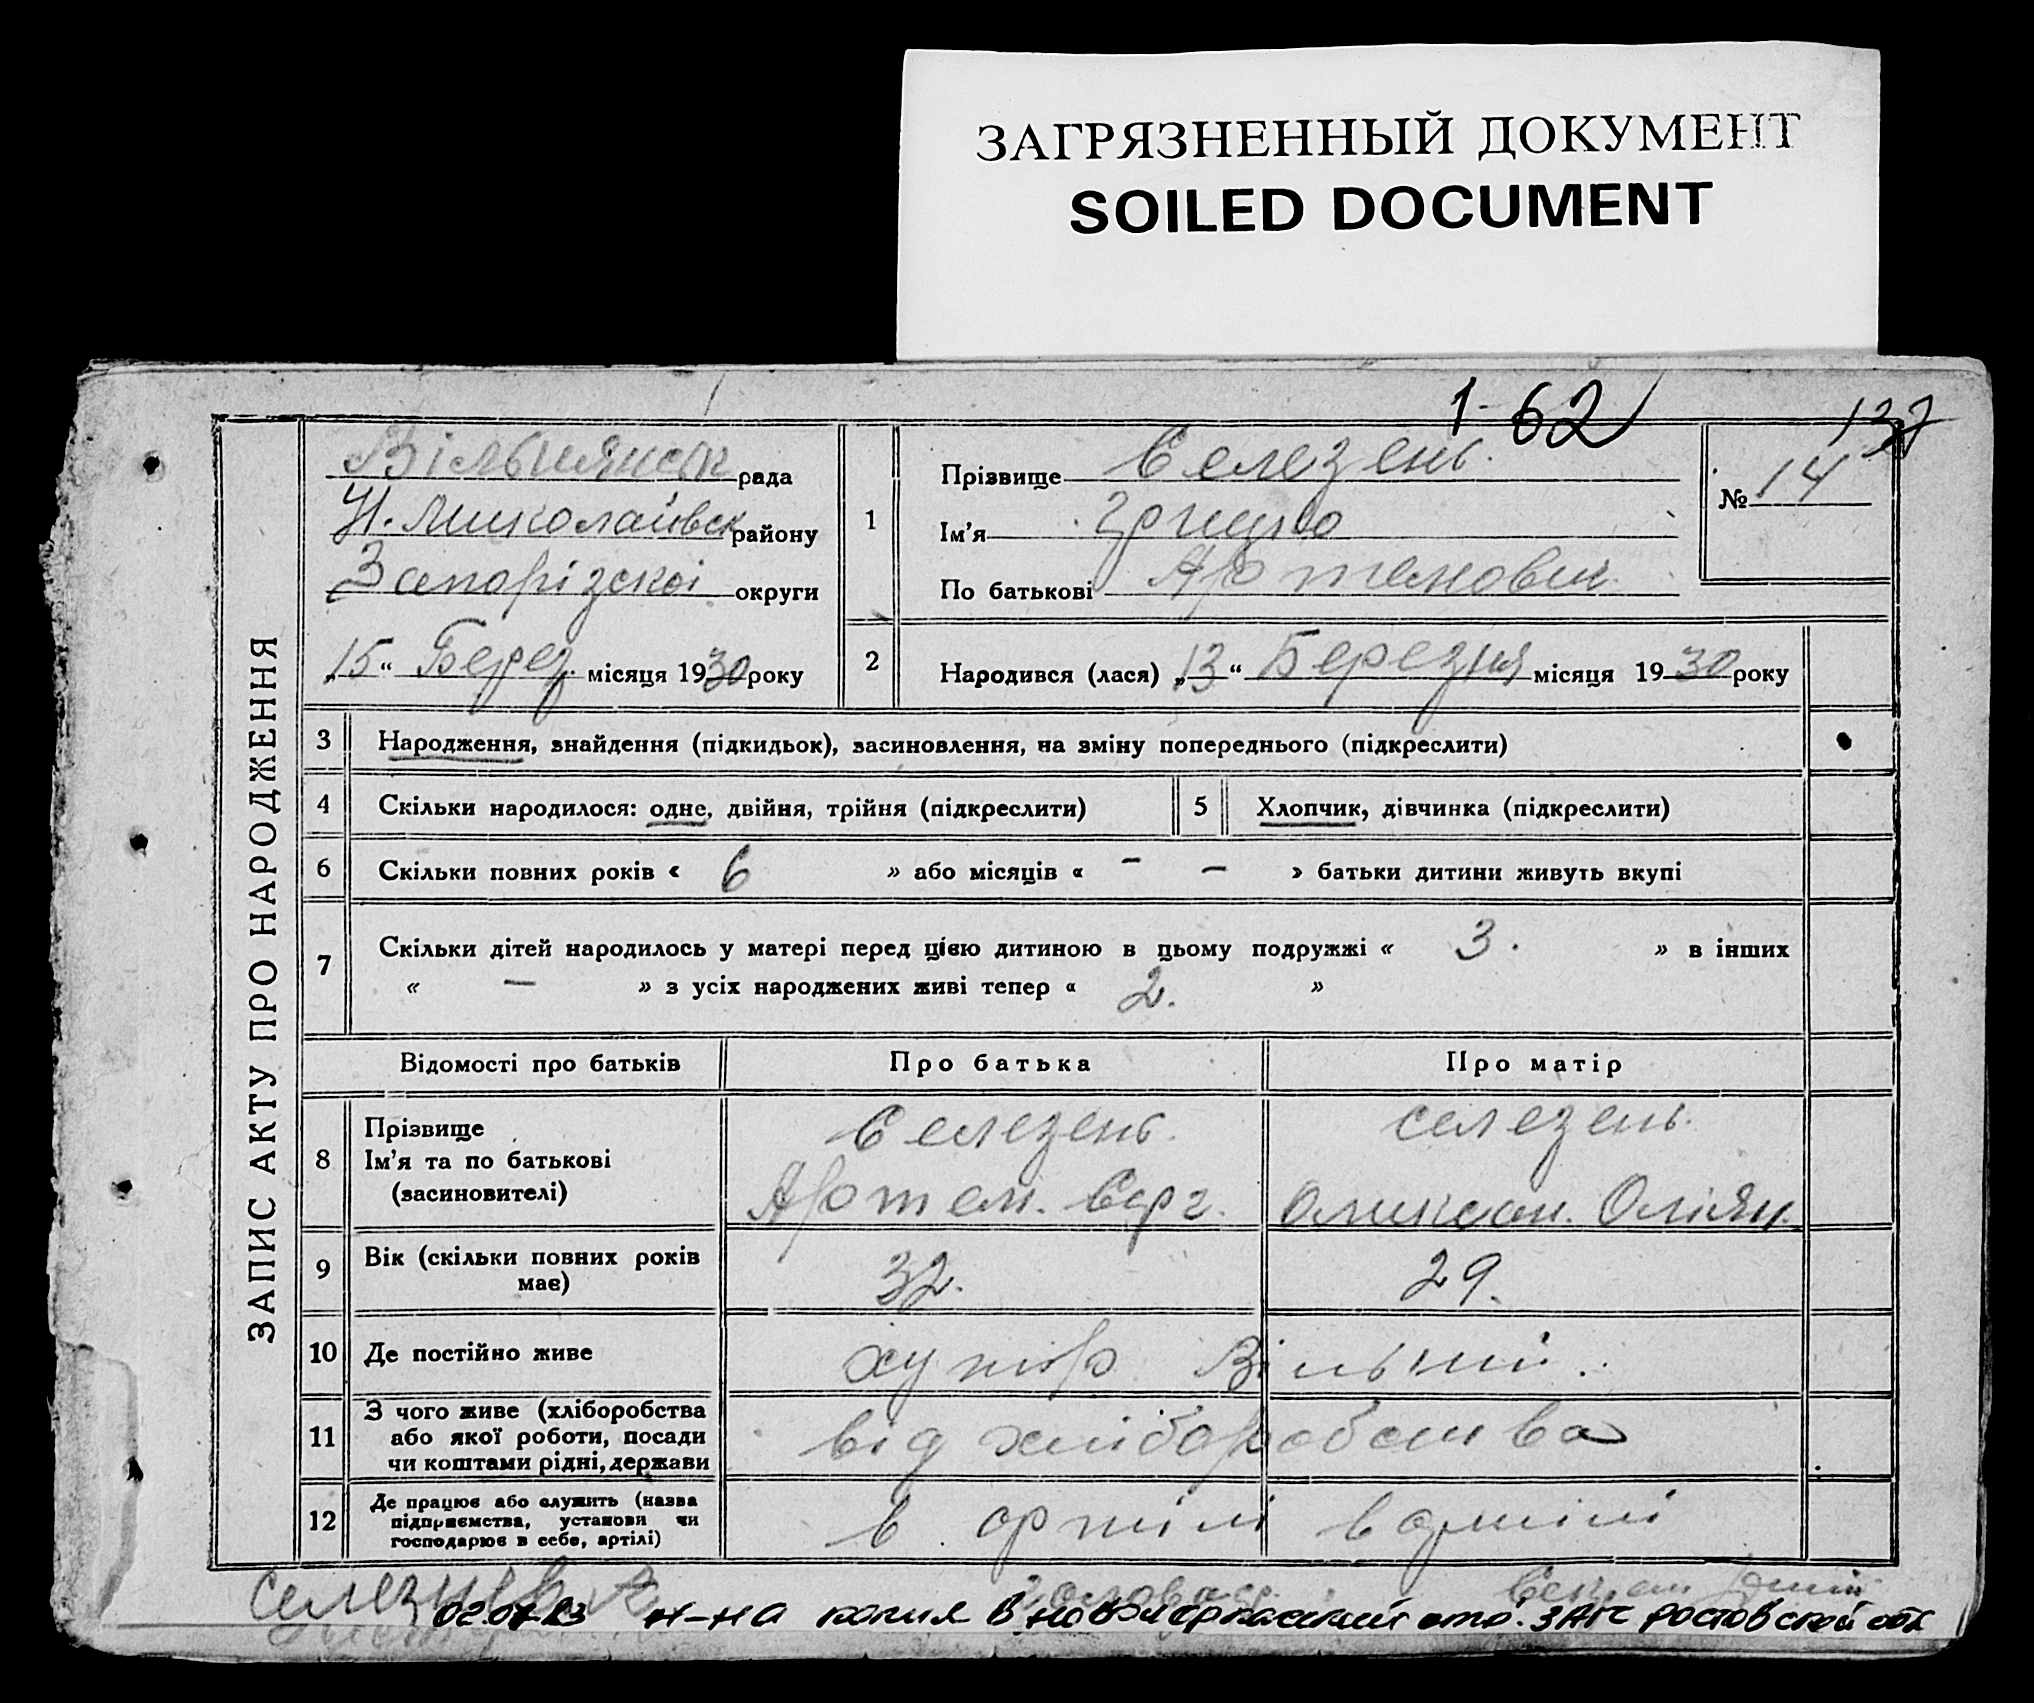 ЗАГРЯЗНЕННЫЙ ДОКУМЕНТ
SOILED DOCUMENT
1-62
137
ЗАПИС АКТУ ПРО НАРОДЖЕННЯ
Вільнянськ рада
Н. Миколаївськ району
Запорізскої округи
„15“ Берез. місяця 1930 року
1 Прізвище Селезень.
Ім'я Грицько
По батькові Артемович.
№ 14
2 Народився (лася) „13“ Березня місяця 1930 року
3 Народження, знайдення (підкидьок), засиновлення, на зміну попереднього (підкреслити)
4 Скільки народилося: одне, двійня, трійня (підкреслити) 5 Хлопчик, дівчинка (підкреслити)
6 Скільки повних років « 6 » або місяців « - - » батьки дитини живуть вкупі
7 Скільки дітей народилось у матері перед цією дитиною в цьому подружжі « 3. » в інших
« — » з усіх народжених живі тепер « 2. »
Відомості про батьків Про батька Про матір
8 Прізвище
Ім'я та по батькові
(засиновителі)
Селезень. Селезень.
Артем. Серг. Олександ. Оліян.
9 Вік (скільки повних років має) 32. 29.
10 Де постійно живе хутор Вільний.
11 З чого живе (хліборобства
або якої роботи, посади
чи коштами рідні, держави
від хліборобства
12 Де працює або служить (назва
підприємства, установи чи
господарює в себе, артілі)
в артілі в артілі
02.07.83 н-на копия в новочеркасский отд. ЗАГС ростовской обл